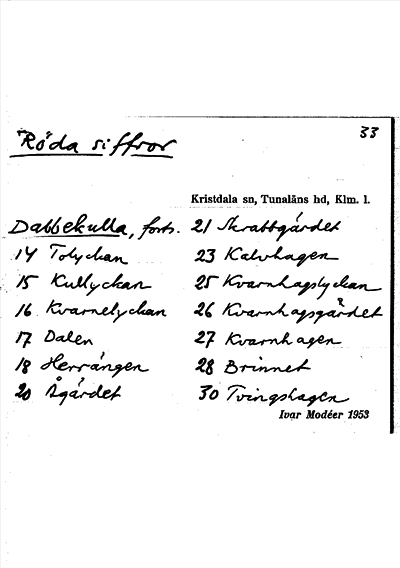 33
Röda siffror
Kristdala sn, Tunaläns hd, Klm. l.
Dabbekulla, forts.
14 Tolyckan
15 Kullyckan
16 Kvarnelyckan
17 Dalen
18 Herrängen
20 Ågärdet
21 Skrattgärdet
23 Kalvhagen
25 Kvarnhagslyckan
26 Kvarnhagsgärdet
27 Kvarnhagen
28 Brinnet
30 Tvingshagen
Ivar Modéer 1953